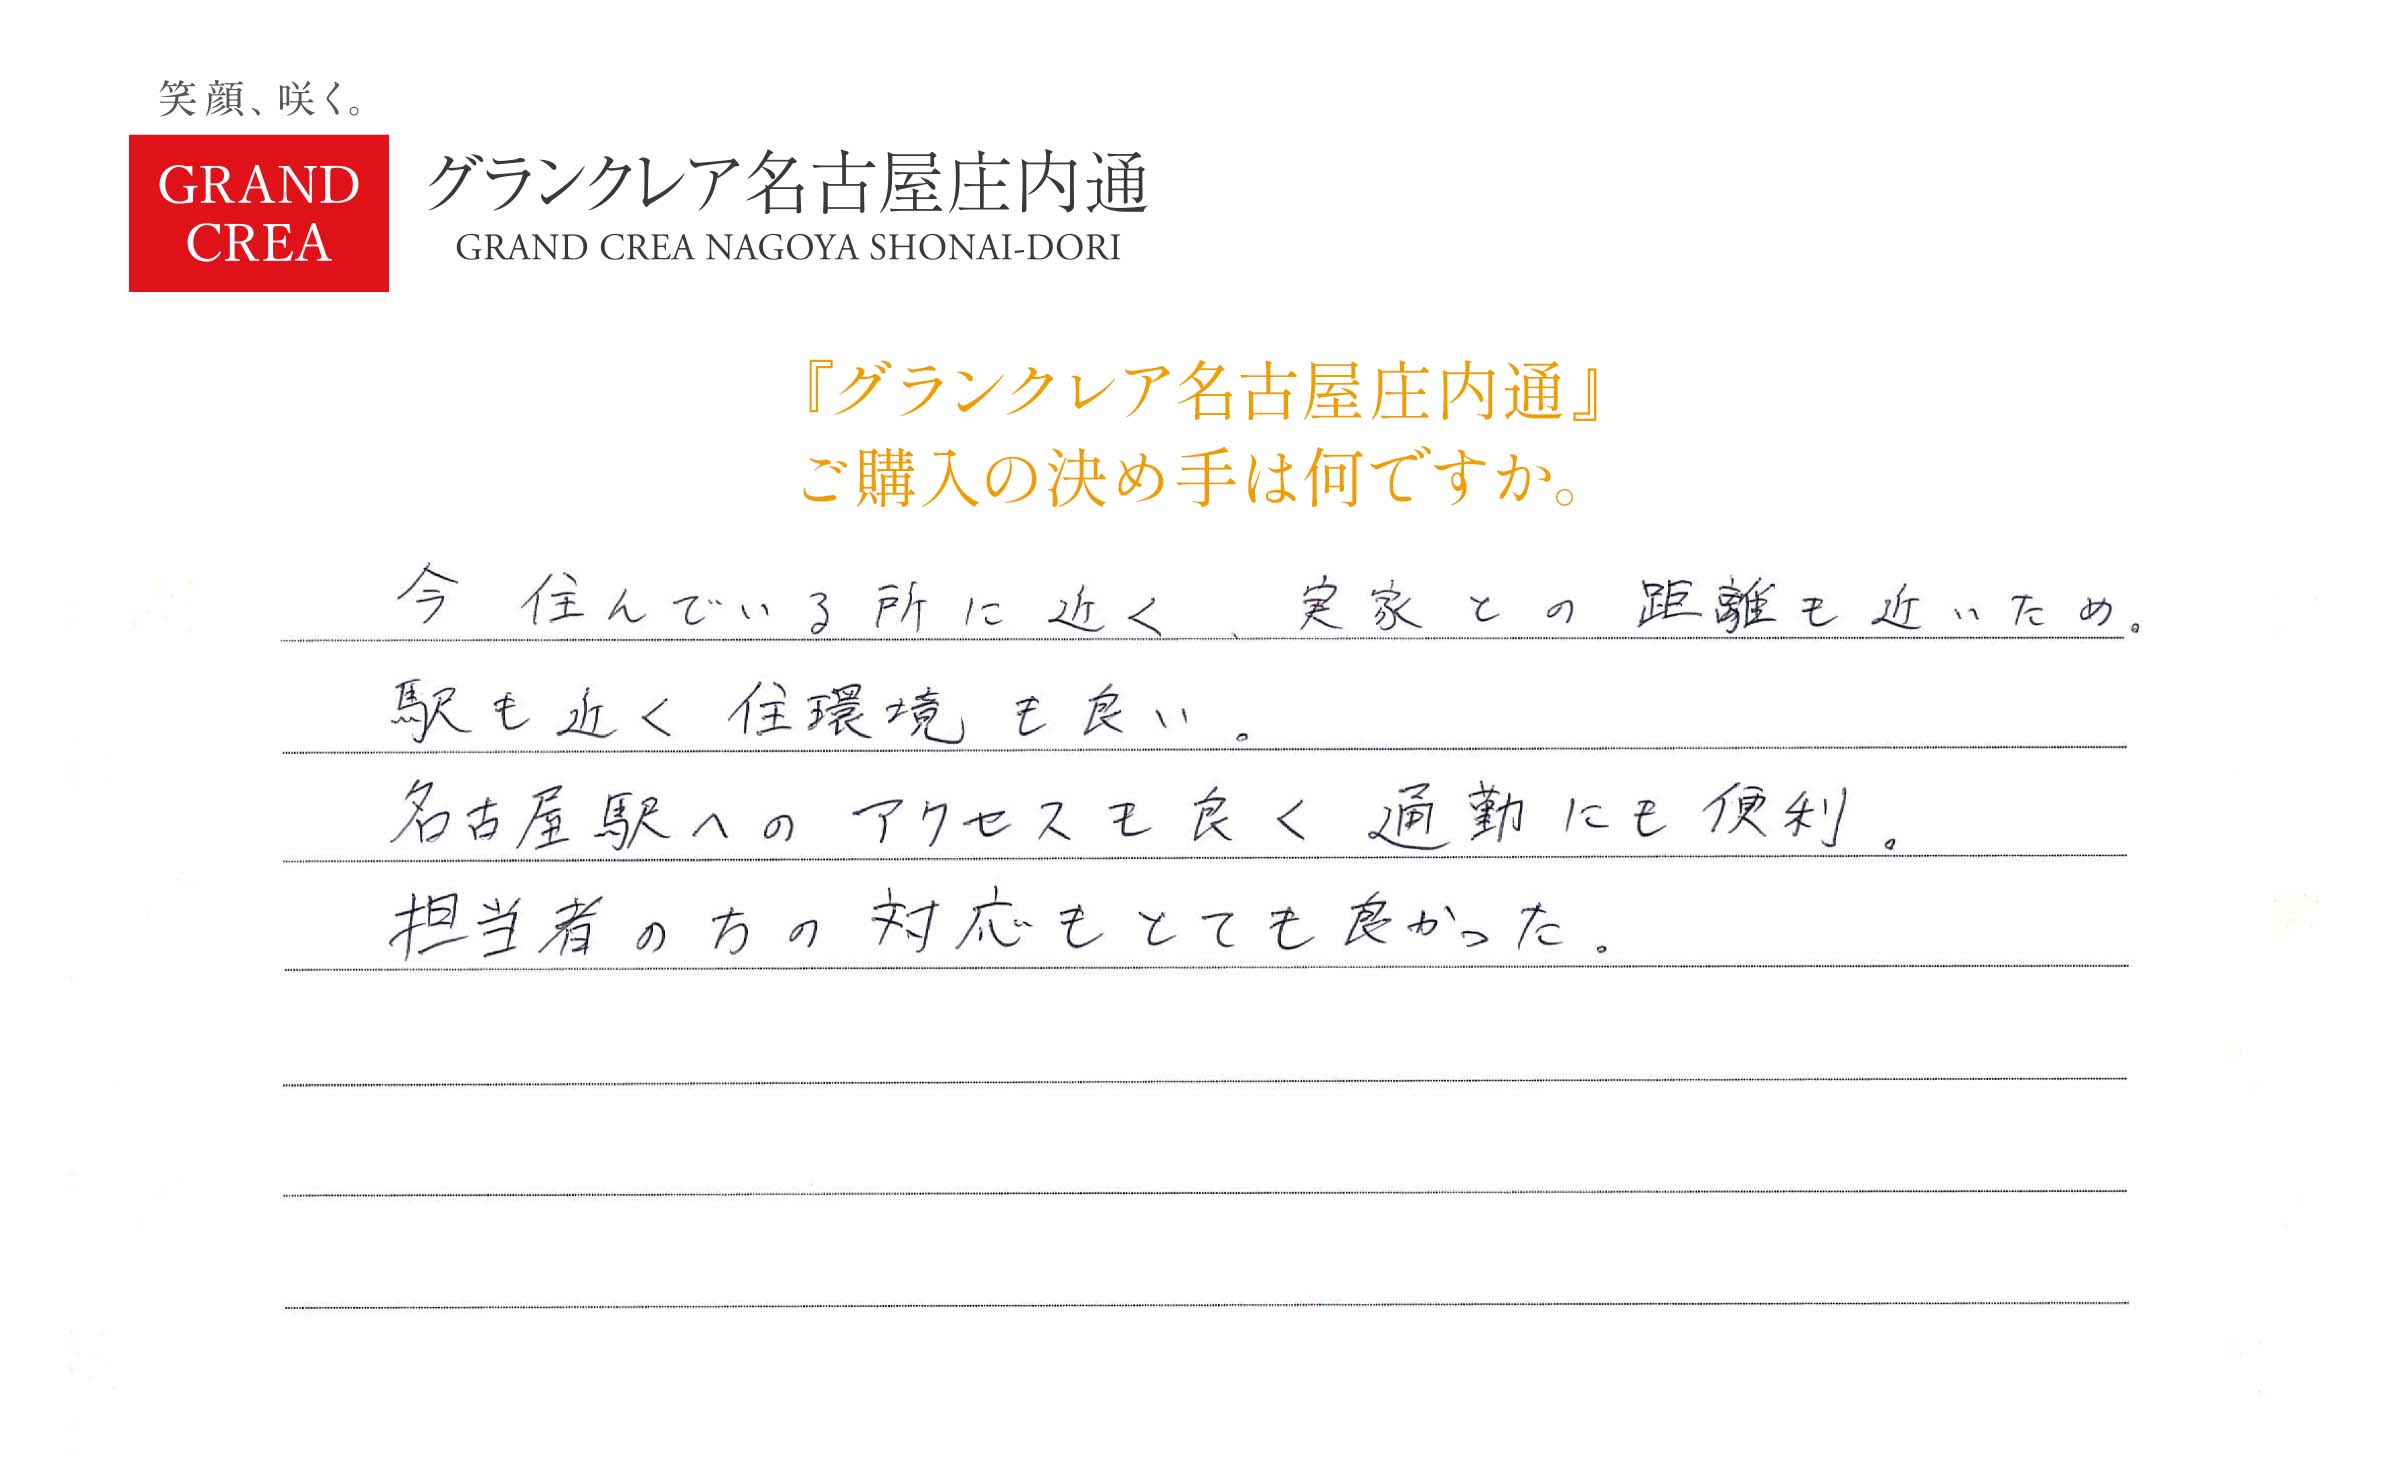 笑顔、咲く。
GRAND
CREA
グランクレア名古屋庄内通
GRAND CREA NAGOYA SHONAI-DORI
『グランクレア名古屋庄内通』
ご購入の決め手は何ですか。
今住んでいる所に近く、実家との距離も近いため。
駅も近く住環境も良い。
名古屋駅へのアクセスも良く通勤にも便利。
担当者の方の対応もとても良かった。